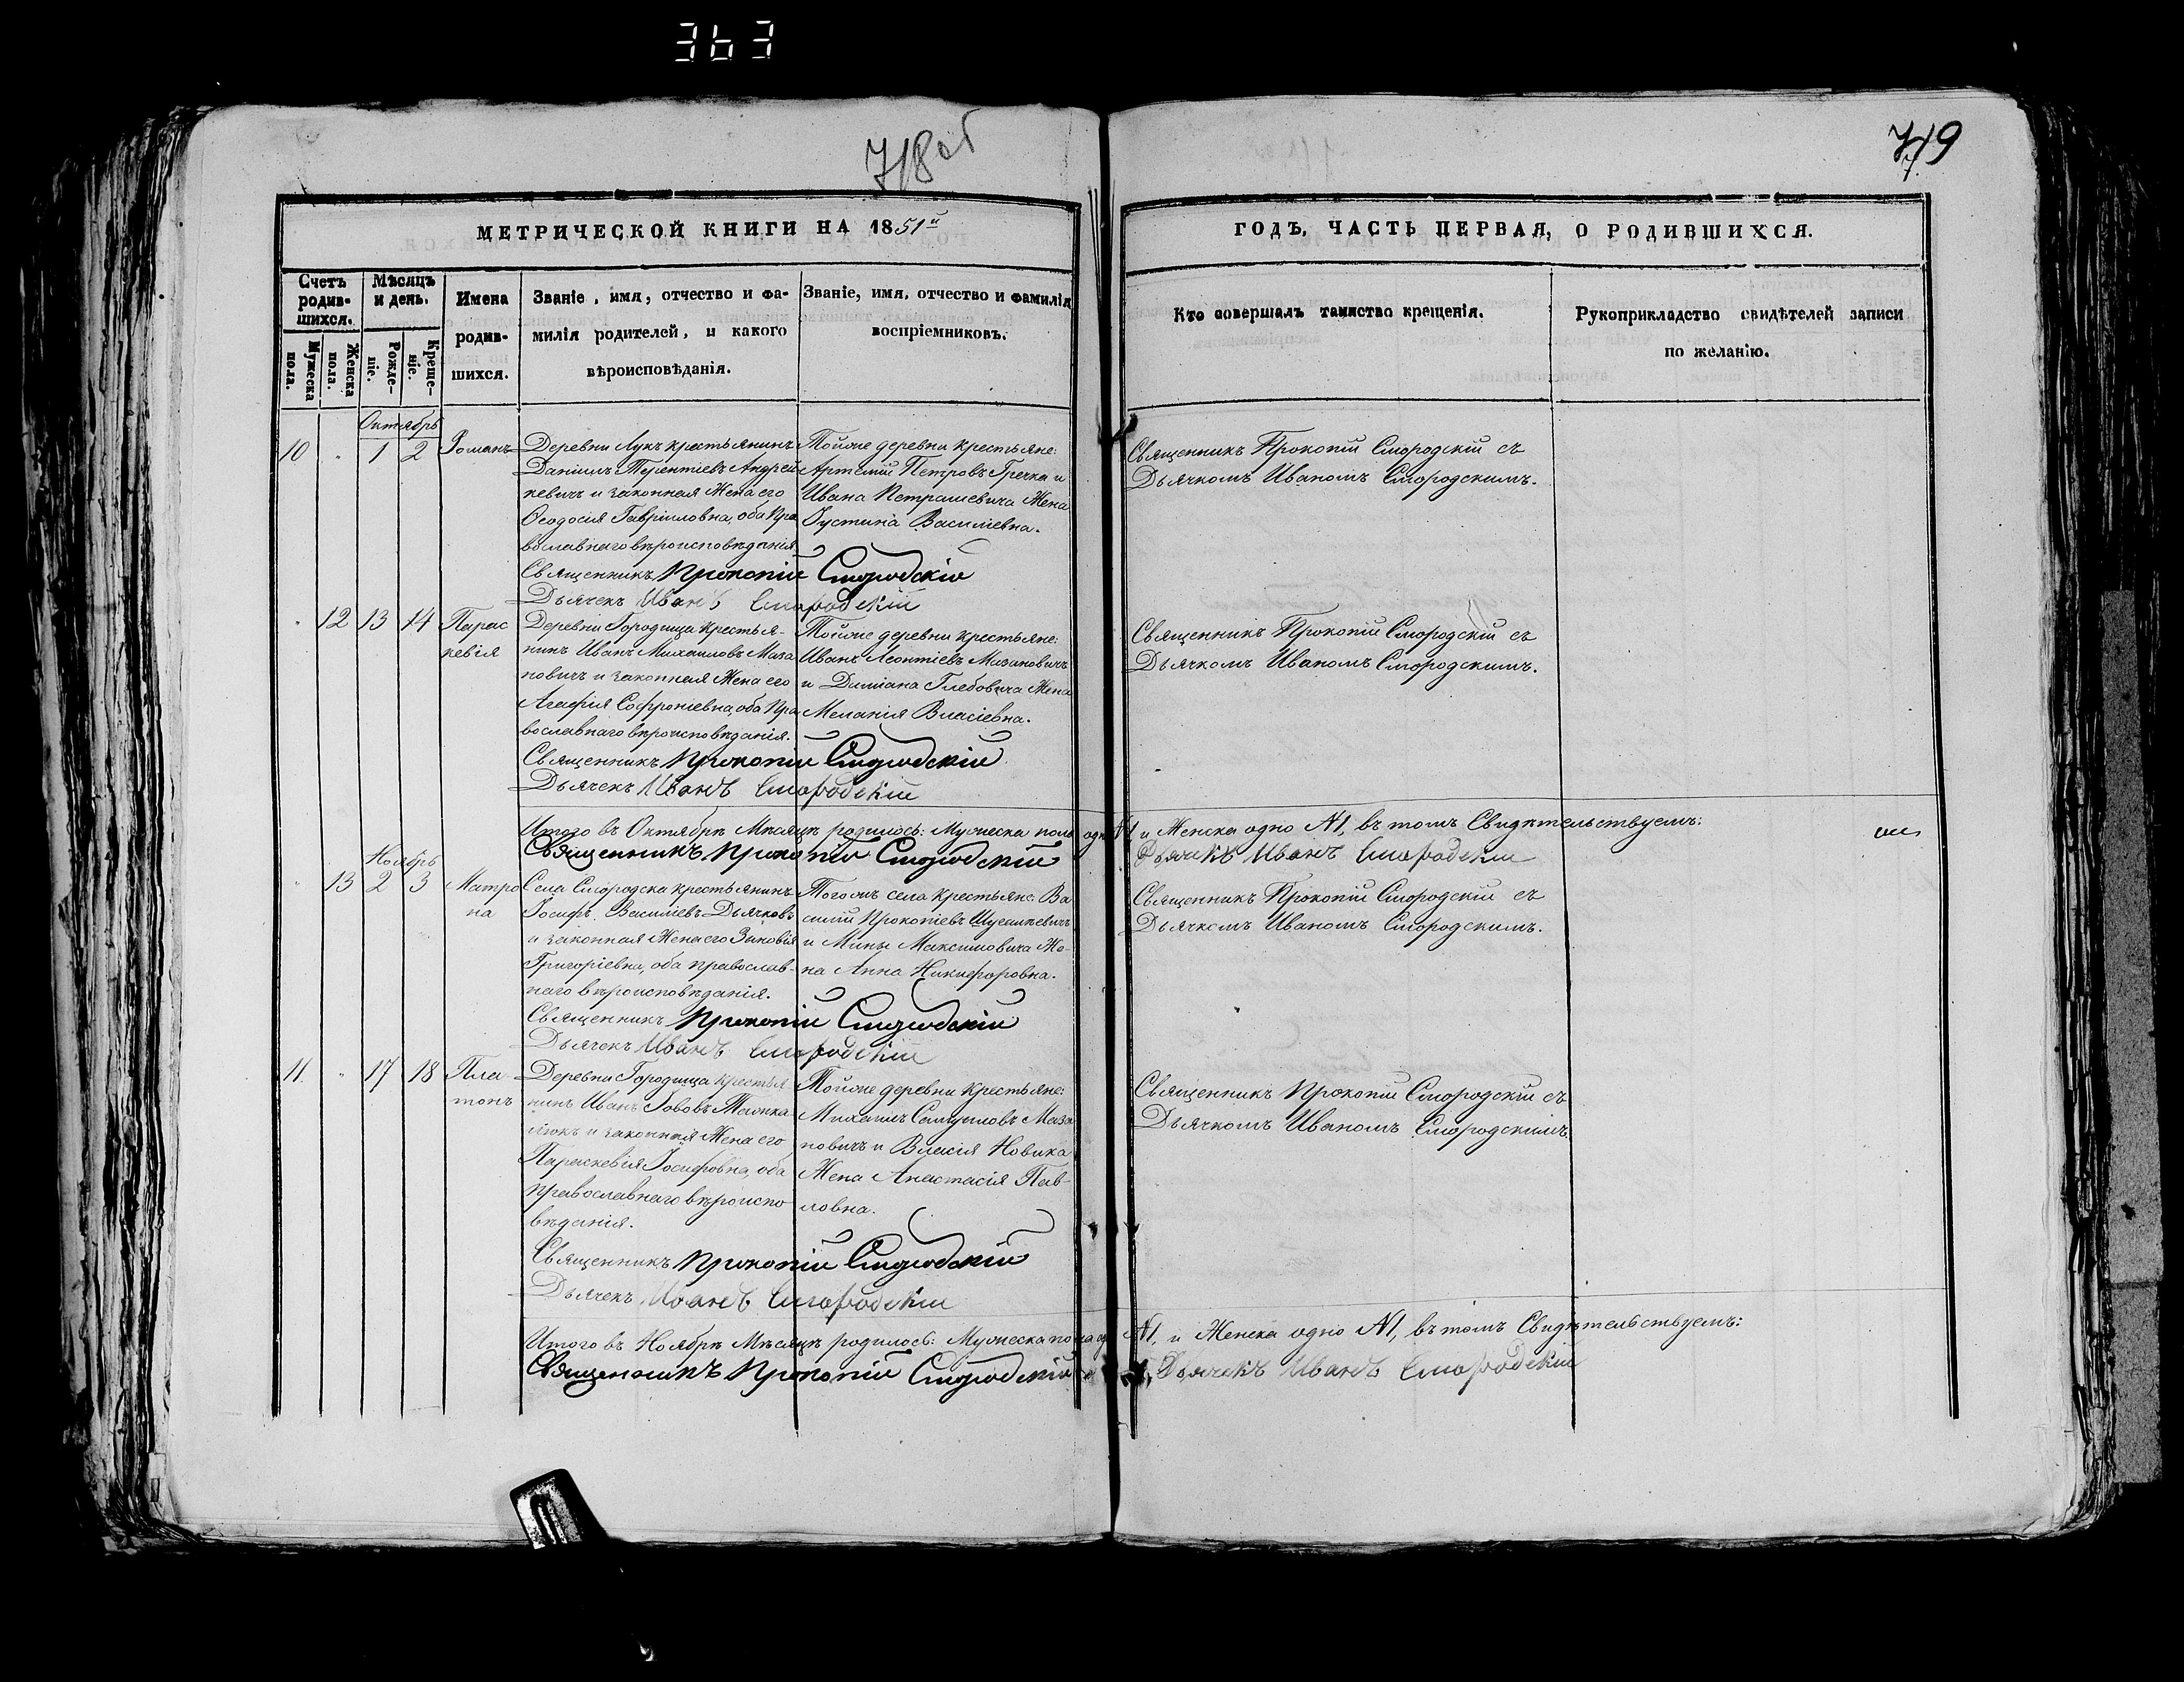 363
718об
719
МЕТРИЧЕСКОЙ КНИГИ НА 1851й
ГОДЪ, ЧАСТЬ ПЕРВАЯ, О РОДИВШИХСЯ.
Счетъ родив- шихся.
Мужеска пола.
Женска пола.
Мѣсяцъ и день.
Рожде- ніе.
Креще- ніе.
Имена родив- шихся.
Званіе, имя, отчество и фа-
милія родителей, и какого
вѣроисповѣданія.
Званіе, имя, отчество и фамилія
воспріемниковъ.
Кто совершалъ таинство крещенія.
Рукоприкладство свидѣтелей записи
по желанію.
Октябрь
10 " 1 2 Романъ
Деревни Лукъ крестьянинъ
Даніилъ Терентіевъ Андрей
кевичъ и законная Жена его
Ѳеодосія Гавріиловна, оба Пра
вославнаго вѣроисповѣданія.
Тойже деревни крестьяне:
Артемій Петровъ Гречка и
Ивана Петрашевича Жена
Іустина Василіевна.
Священникъ Прокопій Смородскій съ
Дьячкомъ Иваномъ Смородскимъ.
Священникъ Прокопій Смородскій
Дьячекъ Иванъ Смородскій
" 12 13 14 Парас
кевія
Деревни Городища крестья-
нинъ Иванъ Михаиловъ Маза
новичъ и законная Жена его
Агафія Софроніевна, оба Пра
вославнаго вѣроисповѣданія.
Тойже деревни крестьяне:
Иванъ Леонтіевъ Мазановичъ
и Даміана Глебовича Жена
Меланія Власіевна.
Священникъ Прокопій Смородскій съ
Дьячкомъ Иваномъ Смородскимъ.
Священникъ Прокопій Смородскій
Дьячекъ Иванъ Смородскій
Итого въ Октябрѣ Мѣсяцѣ родилось: Мужеска пола одн N1 и Женска одно N1, въ томъ Свидѣтельствуемъ:
Священникъ Прокопій Смородскій Дьячекъ Иванъ Смородскій
Ноябрь
" 13 2 3 Матро
на
Села Смородска крестьянинъ
Іосифъ Василіевъ Дьячковъ
и законная Жена его Зиновія
Григоріевна, оба православ-
наго вѣроисповѣданія.
Тогожъ села крестьяне: Ва
силій Прокопіевъ
и Мины Максимовича Же-
на Анна Никифоровна.
Священникъ Прокопій Смородскій съ
Дьячкомъ Иваномъ Смородскимъ.
Священникъ Прокопій Смородскій
Дьячекъ Иванъ Смородскій
11. " 17 18 Пла-
тонъ
Деревни Городища крестья
нинъ Иванъ Іововъ
и законная Жена его
Параскевія Іосифовна, оба
православнаго вѣроиспо
вѣданія.
Тойже деревни крестьяне:
Михаилъ Самуиловъ Маза
новичъ и Власія Новика
Жена Анастасія Пав-
ловна.
Священникъ Прокопій Смородскій съ
Дьячкомъ Иваномъ Смородскимъ.
Священникъ Прокопій Смородскій
Дьячекъ Иванъ Смородскій
Итого въ Ноябрѣ Мѣсяцѣ родилось: Мужеска пола од N1, и Женска одно N1, въ томъ Свидѣтельствуемъ:
Священникъ Прокопій Смородскій Дьячекъ Иванъ Смородскій